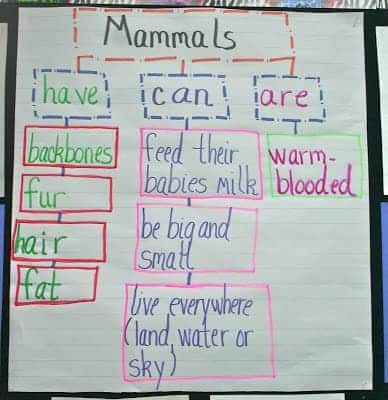 Mammals
have
can
are
backbones
fur
hair
fat
feed their
babies milk
be big and
small
live everywhere
(land, water or
sky)
warm-
blooded